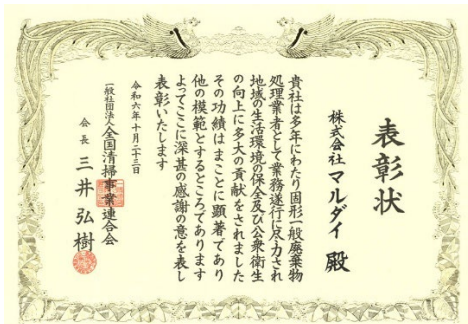 表彰状
株式会社 マルダイ 殿
貴社は多年にわたり固形一般廃棄物
処理業者として業務遂行に尽力され
地域の生活環境の保全及び公衆衛生
の向上に多大の貢献をされました
その功績はまことに顕著であり
他の模範とするところであります
よってここに深甚の感謝の意を表し
表彰いたします
令和六年十月二十三日
一般社団法人全国清掃事業連合会
会長 三井弘樹